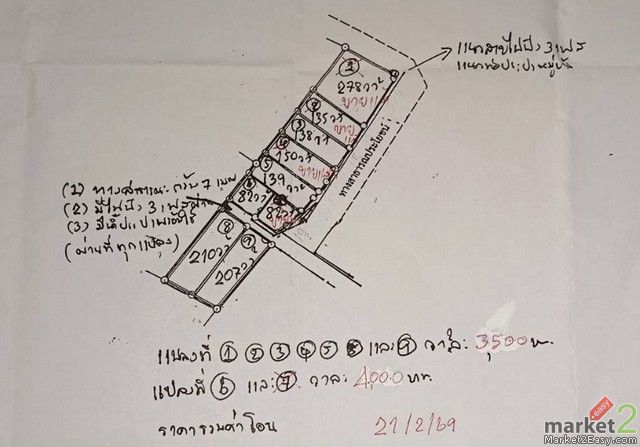 แนวสายไฟฟ้า 3 เฟส
แนวท่อประปาหมู่บ้าน
①
278 วา
ขายแล้ว
②
135 วา
③
138 วา
ขายแล้ว
④
150 วา
ขายแล้ว
⑤
139 วา
⑥
82 วา
82 วา
ทางสาธารณประโยชน์
(1) ทางสาธารณะกว้าง 7 เมตร
(2) มีไฟฟ้า 3 เฟสผ่าน
(3) มีน้ำประปาพร้อมใช้
(ผ่านที่ทุกแปลง)
⑧
210 วา
⑨
207 วา
แปลงที่ ① ② ③ ④ ⑤ ⑧ และ ⑨ วาละ 3,500 บ.
แปลงที่ ⑥ และ ⑦ วาละ 4,000 บาท
ราคารวมค่าโอน
21/2/69
market2easy
Market2Easy.com